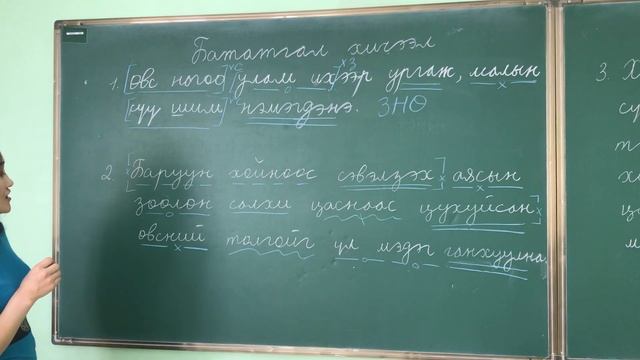 Бататгал хичээл
1. [Өвс ногоо] [улам их]ээр ургаж, малын
[сүү шим] нэмэгдэнэ. ЗНӨ
2. [Баруун хойноос сэвэлзэх] аясын
зөөлөн салхи цаснаас цухуйсан]
өвсний толгойг үл мэдэг ганхуулна.
3. Х